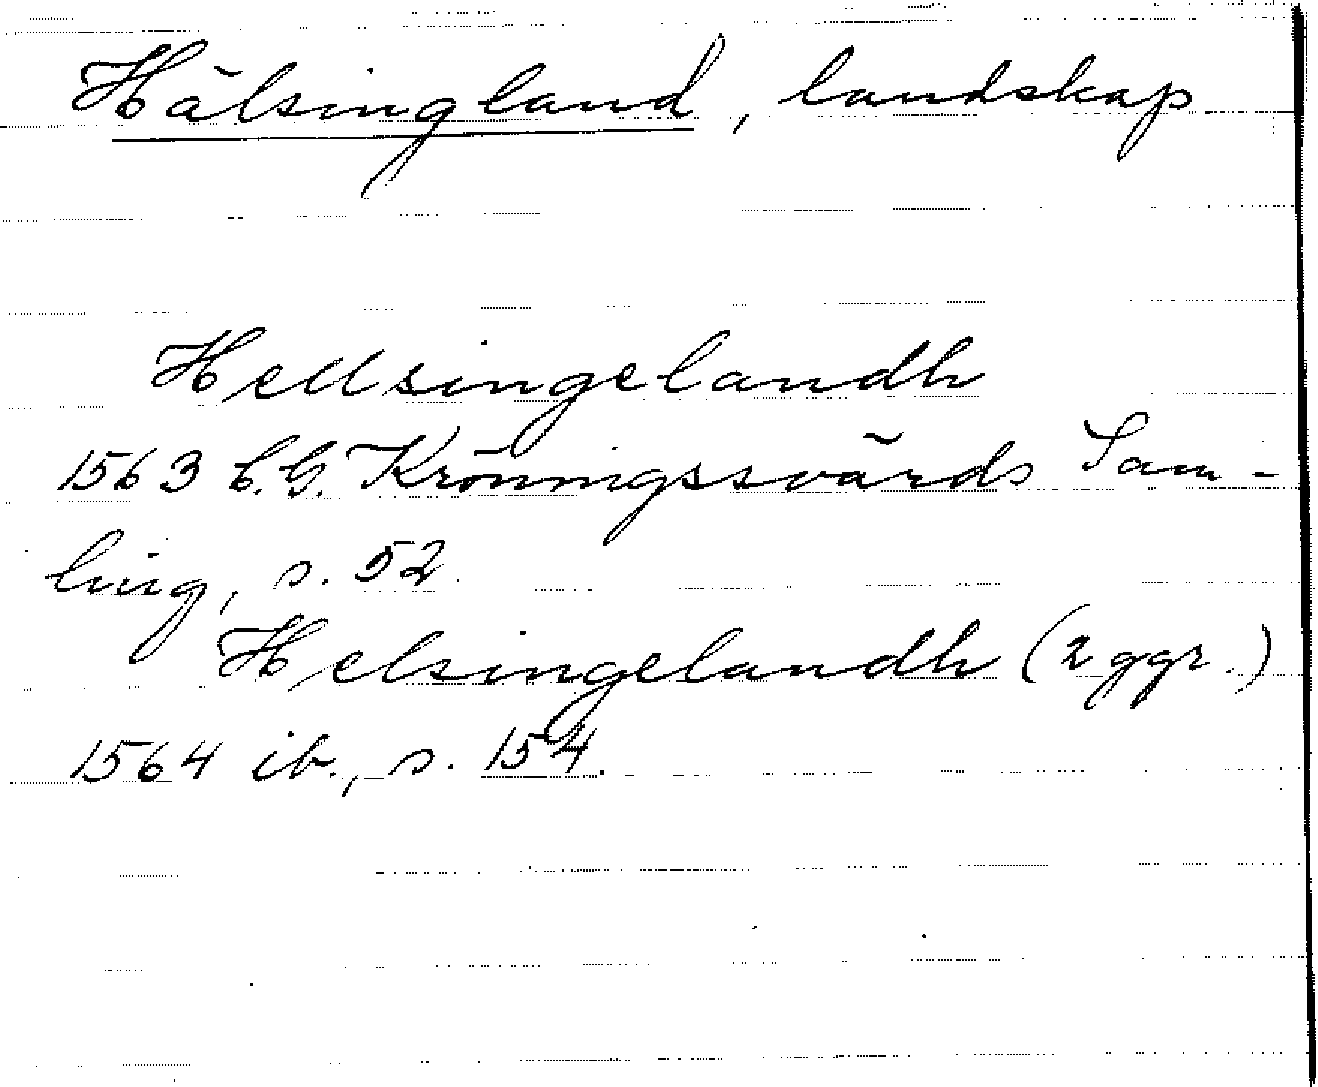 Hälsingland, landskap
Hellsingelandh
1563 C.G. Kröningssvärds Sam-
ling, s. 52.
Helsingelandh (2 ggr.)
1564 ib., s. 154.